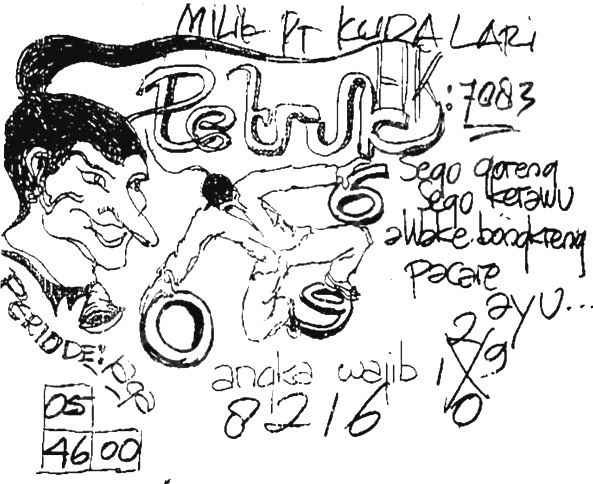 MILIK PT KUDA LARI
Petruk
HK: 7083
6
Sego goreng
Sego kerawu
awake bongkreng
pacare
ayu...
0 9
PERIODE:
angka wajib
8216
2
1 9
0
05
46 00